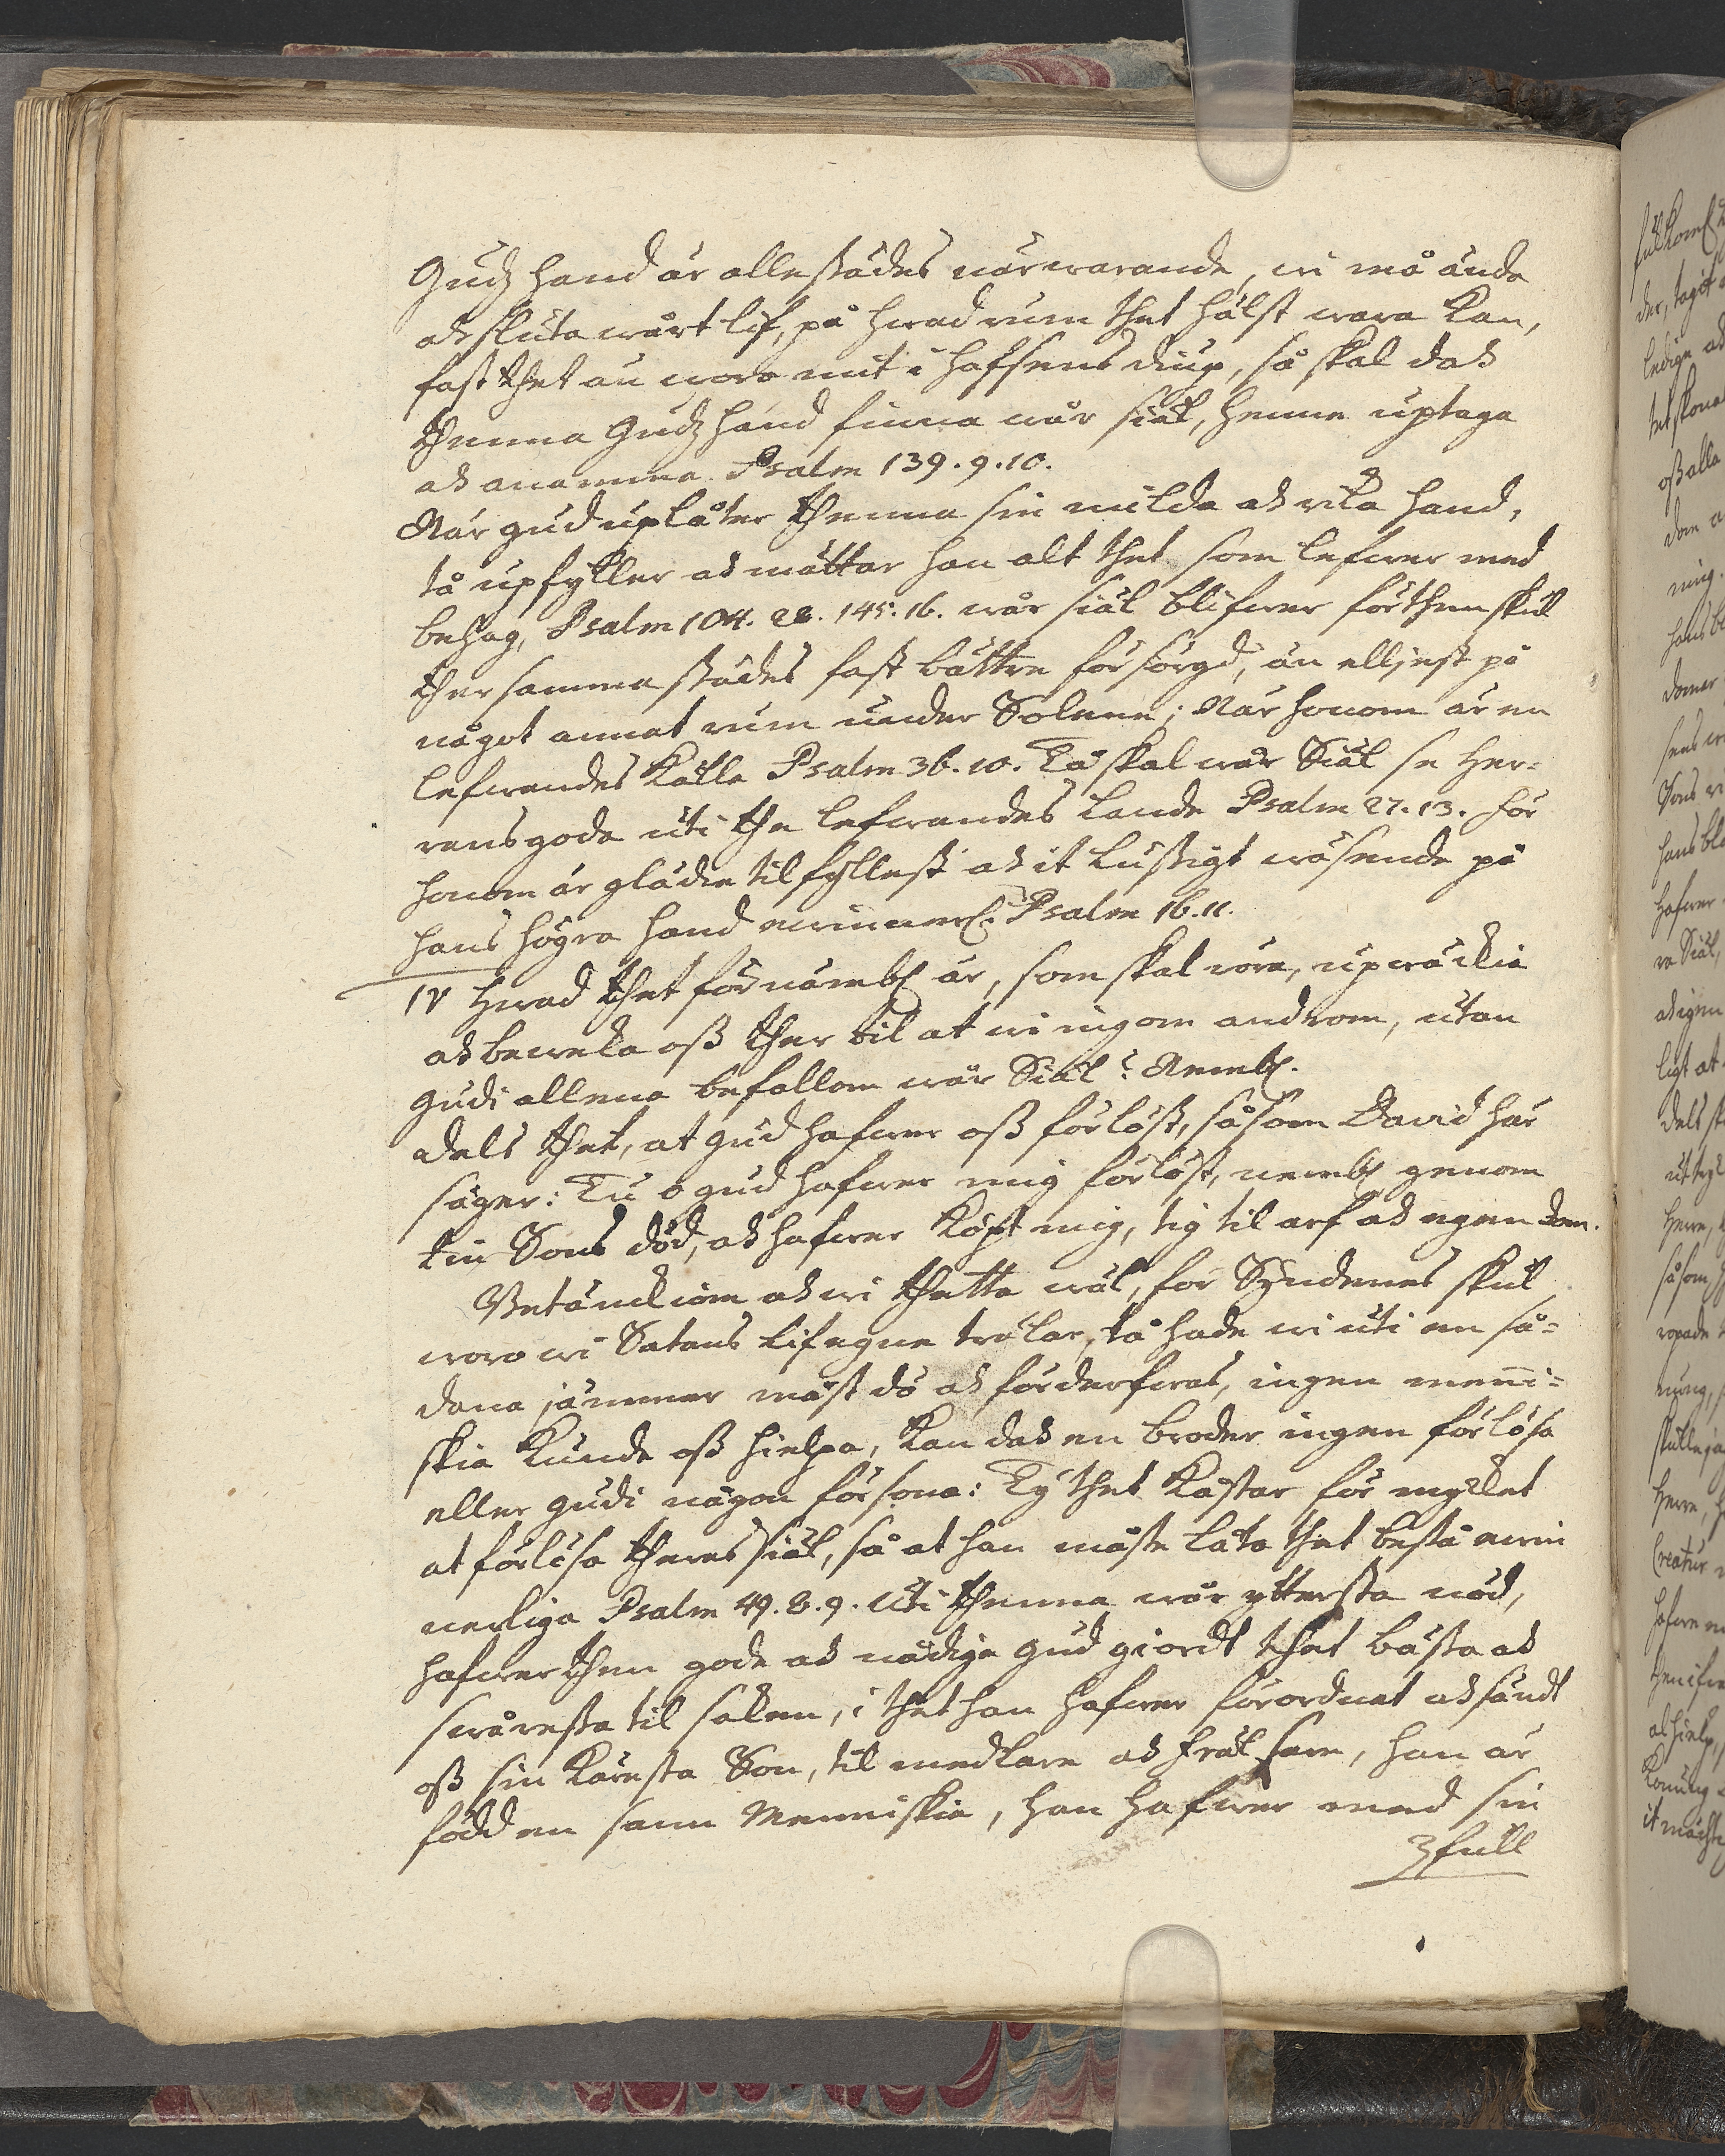 Gudz hand är allestädes närwarande, wi må ända
ok sluta wårt lif, på hwad rum thet hälst wara kan,
fast thet än woro mit i hafsens diup, så skal dok
thenna Gudz hand finna wår siäl, henne uptaga
ok anamma Psalm 139. 9. 10.
När gud uplåter thenna sin milda ok rika hand,
tå upfyller ok mättar han alt thet som lefwer med
behag, Psalm 104. 28. 145. 16. wår siäl blifwer förthenskul
ther samma städes fast bättre försörgd, än elljest på
något annat rum under Solenne; När honom är en
lefwandes källa Psalm 36. 10. Tå skal wår Siäl se Her=
rens goda uti the lefwandes Lande Psalm 27. 13. för
honom är glädie tilfyllest ok it lustigt wäsende på
hans högra hand ewinnerl: Psalm 16. 11.
IV Hwad thet förnämbl är, som skal röra, upwäckia
ok beweka oss ther til at wi ingom androm, utan
gudi allena befallom wår Siäl? Nembl.
dels thet, at gud hafwer oss förlöst, såsom David här
säger: Tu o gud hafwer mig förlöst, nembl genom
tin Sons död, ok hafwer köpt mig, tig til arf ok egendom.
Betänckiom ok wi thetta wäl, för Syndenes skul
woro wi Satans lifegne trälar, tå hade wi uti en så=
dana jämmer måst dö ok förderfwas, ingen menni=
skia kunde oss hielpa, kan dok en broder ingen förlösa
eller gudi någon försona: Ty thet kostar för mycket
at förlösa theras siäl, så at han måste låta thet bestå ewin
nerliga Psalm 49. 8. 9. Uti thenna wår yttersta nöd,
hafwer then gode ok nådige gud giordt thet bästa ok
swåresta til saken, i thet han hafwer förordnat ok sändt
oss sin käresta Son, til medlare ok frälsare, han är
född en sann Menniskia, han hafwer med sin
full